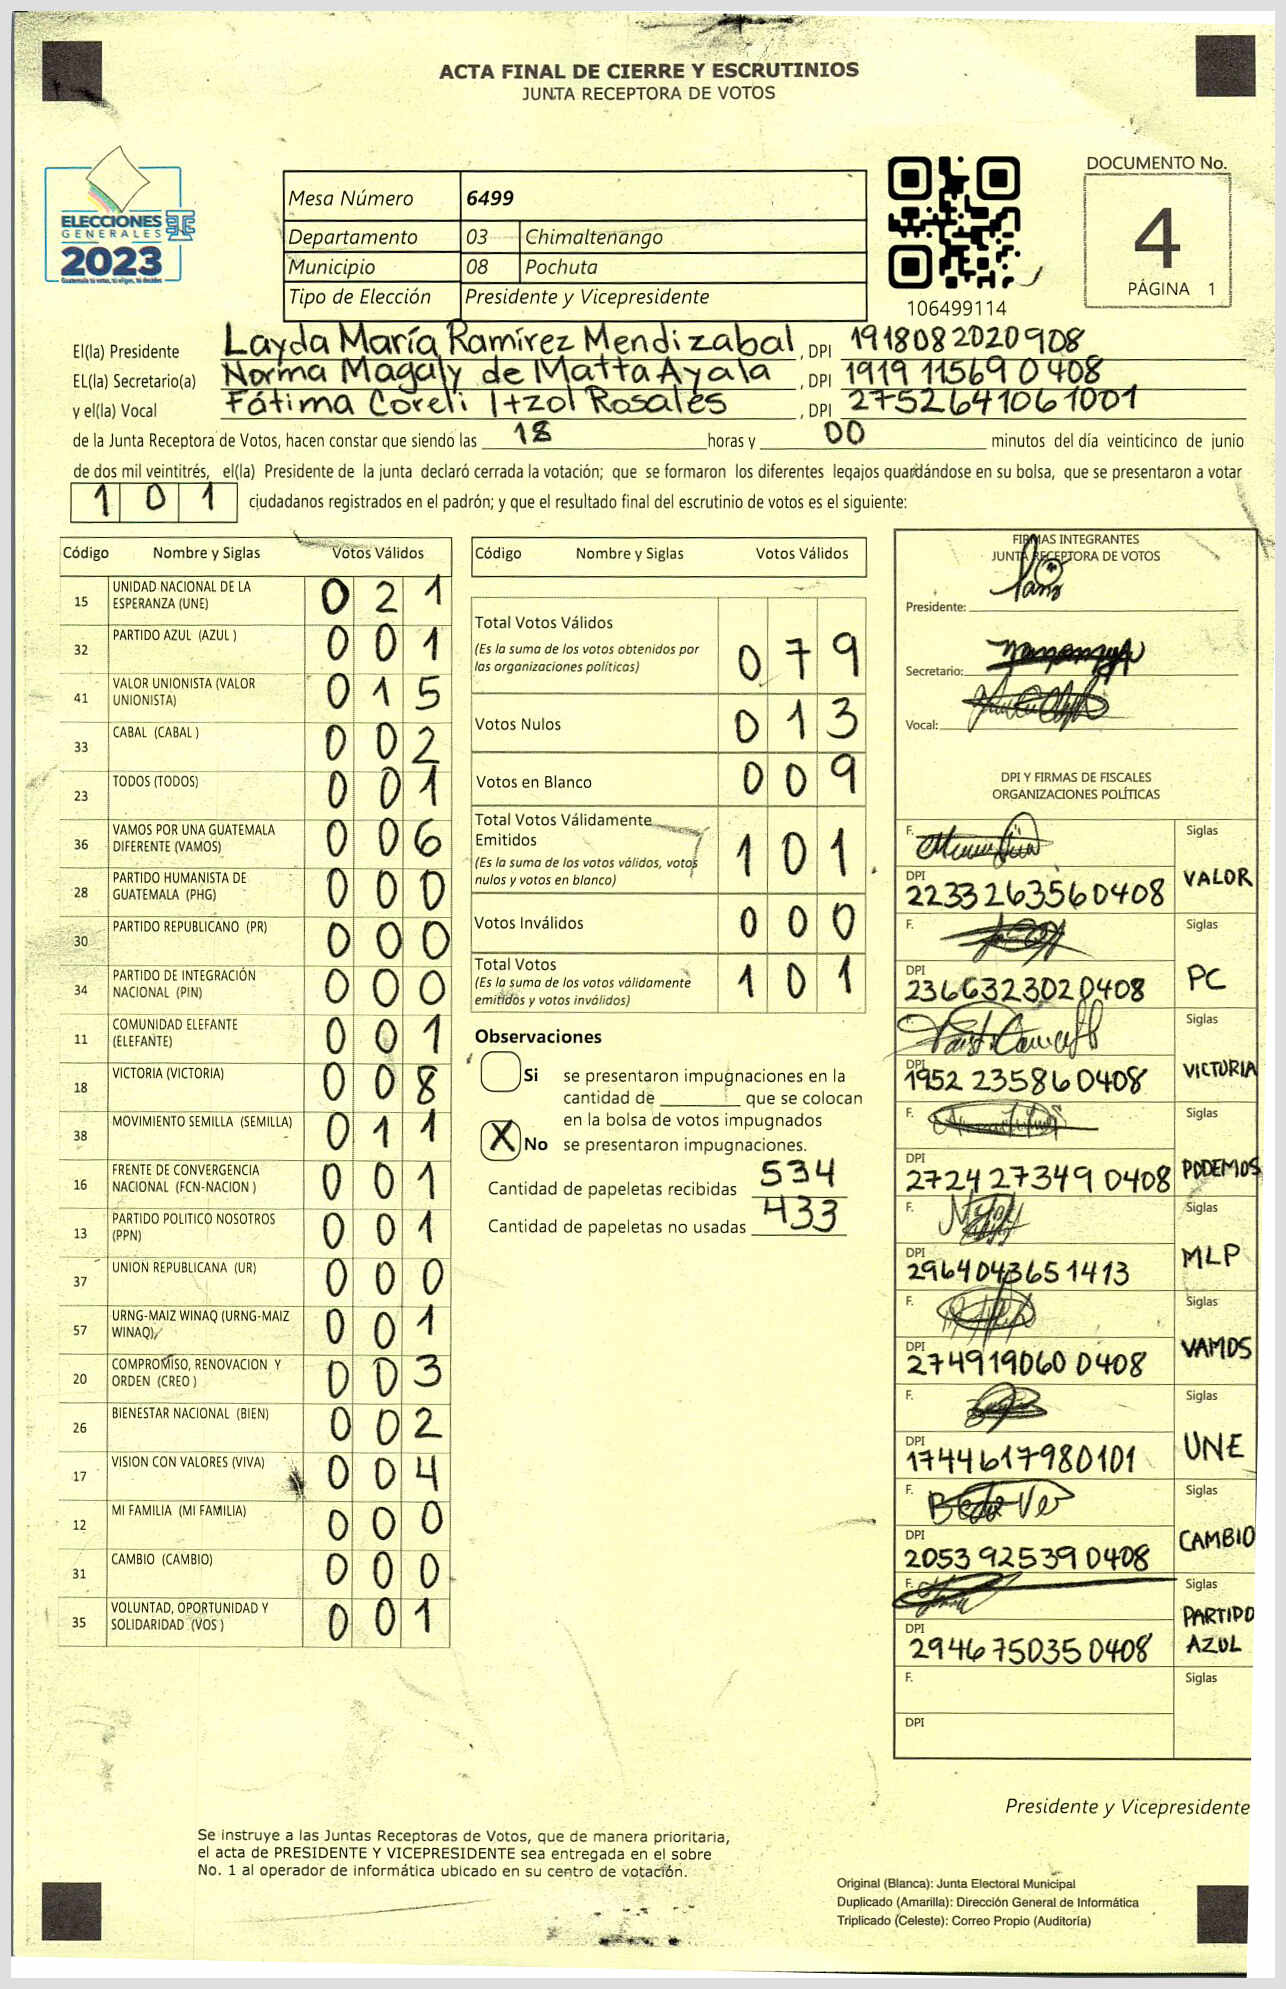 ACTA FINAL DE CIERRE Y ESCRUTINIOS
JUNTA RECEPTORA DE VOTOS
ELECCIONES
GENERALES
2023
Mesa Número 6499
Departamento 03 Chimaltenango
Municipio 08 Pochuta
Tipo de Elección Presidente y Vicepresidente
106499114
DOCUMENTO No.
4
PÁGINA 1
El(la) Presidente Layda María Ramírez Mendizabal, DPI 1918082020908
EL(la) Secretario(a) Norma Magaly de Matta Ayala, DPI 1919 11569 0408
y el(la) Vocal Fátima Coreli Itzol Rosales, DPI 2752641061001
de la Junta Receptora de Votos, hacen constar que siendo las 18 horas y 00 minutos del día veinticinco de junio
de dos mil veintitrés, el(la) Presidente de la junta declaró cerrada la votación; que se formaron los diferentes legajos guardándose en su bolsa, que se presentaron a votar
1 0 1 ciudadanos registrados en el padrón; y que el resultado final del escrutinio de votos es el siguiente:
Código Nombre y Siglas Votos Válidos
15 UNIDAD NACIONAL DE LA ESPERANZA (UNE) 0 2 1
32 PARTIDO AZUL (AZUL ) 0 0 1
41 VALOR UNIONISTA (VALOR UNIONISTA) 0 1 5
33 CABAL (CABAL ) 0 0 2
23 TODOS (TODOS) 0 0 1
36 VAMOS POR UNA GUATEMALA DIFERENTE (VAMOS) 0 0 6
28 PARTIDO HUMANISTA DE GUATEMALA (PHG) 0 0 0
30 PARTIDO REPUBLICANO (PR) 0 0 0
34 PARTIDO DE INTEGRACIÓN NACIONAL (PIN) 0 0 0
11 COMUNIDAD ELEFANTE (ELEFANTE) 0 0 1
18 VICTORIA (VICTORIA) 0 0 8
38 MOVIMIENTO SEMILLA (SEMILLA) 0 1 1
16 FRENTE DE CONVERGENCIA NACIONAL (FCN-NACION ) 0 0 1
13 PARTIDO POLITICO NOSOTROS (PPN) 0 0 1
37 UNION REPUBLICANA (UR) 0 0 0
57 URNG-MAIZ WINAQ (URNG-MAIZ WINAQ) 0 0 1
20 COMPROMISO, RENOVACION Y ORDEN (CREO ) 0 0 3
26 BIENESTAR NACIONAL (BIEN) 0 0 2
17 VISION CON VALORES (VIVA) 0 0 4
12 MI FAMILIA (MI FAMILIA) 0 0 0
31 CAMBIO (CAMBIO) 0 0 0
35 VOLUNTAD, OPORTUNIDAD Y SOLIDARIDAD (VOS ) 0 0 1
Código Nombre y Siglas Votos Válidos
Total Votos Válidos
(Es la suma de los votos obtenidos por
las organizaciones políticas) 0 7 9
Votos Nulos 0 1 3
Votos en Blanco 0 0 9
Total Votos Válidamente
Emitidos
(Es la suma de los votos válidos, votos
nulos y votos en blanco) 1 0 1
Votos Inválidos 0 0 0
Total Votos
(Es la suma de los votos válidamente
emitidos y votos inválidos) 1 0 1
Observaciones
Si se presentaron impugnaciones en la
cantidad de ________ que se colocan
en la bolsa de votos impugnados
X No se presentaron impugnaciones.
Cantidad de papeletas recibidas 534
Cantidad de papeletas no usadas 433
FIRMAS INTEGRANTES
JUNTA RECEPTORA DE VOTOS
Presidente:
Secretario:
Vocal:
DPI Y FIRMAS DE FISCALES
ORGANIZACIONES POLÍTICAS
F. Siglas
DPI 2233 26356 0408 VALOR
F. Siglas
DPI 236632302 0408 PC
F. Siglas
DPI 1952 23586 0408 VICTORIA
F. Siglas
DPI 2724 27349 0408 PODEMOS
F. Siglas
DPI 2964043651413 MLP
F. Siglas
DPI 274919060 0408 VAMOS
F. Siglas
DPI 1744617980101 UNE
F. Siglas
DPI 2053 92539 0408 CAMBIO
F. Siglas
DPI 2946 75035 0408 PARTIDO AZUL
F. Siglas
DPI
Presidente y Vicepresidente
Se instruye a las Juntas Receptoras de Votos, que de manera prioritaria,
el acta de PRESIDENTE Y VICEPRESIDENTE sea entregada en el sobre
No. 1 al operador de informática ubicado en su centro de votación.
Original (Blanca): Junta Electoral Municipal
Duplicado (Amarilla): Dirección General de Informática
Triplicado (Celeste): Correo Propio (Auditoría)